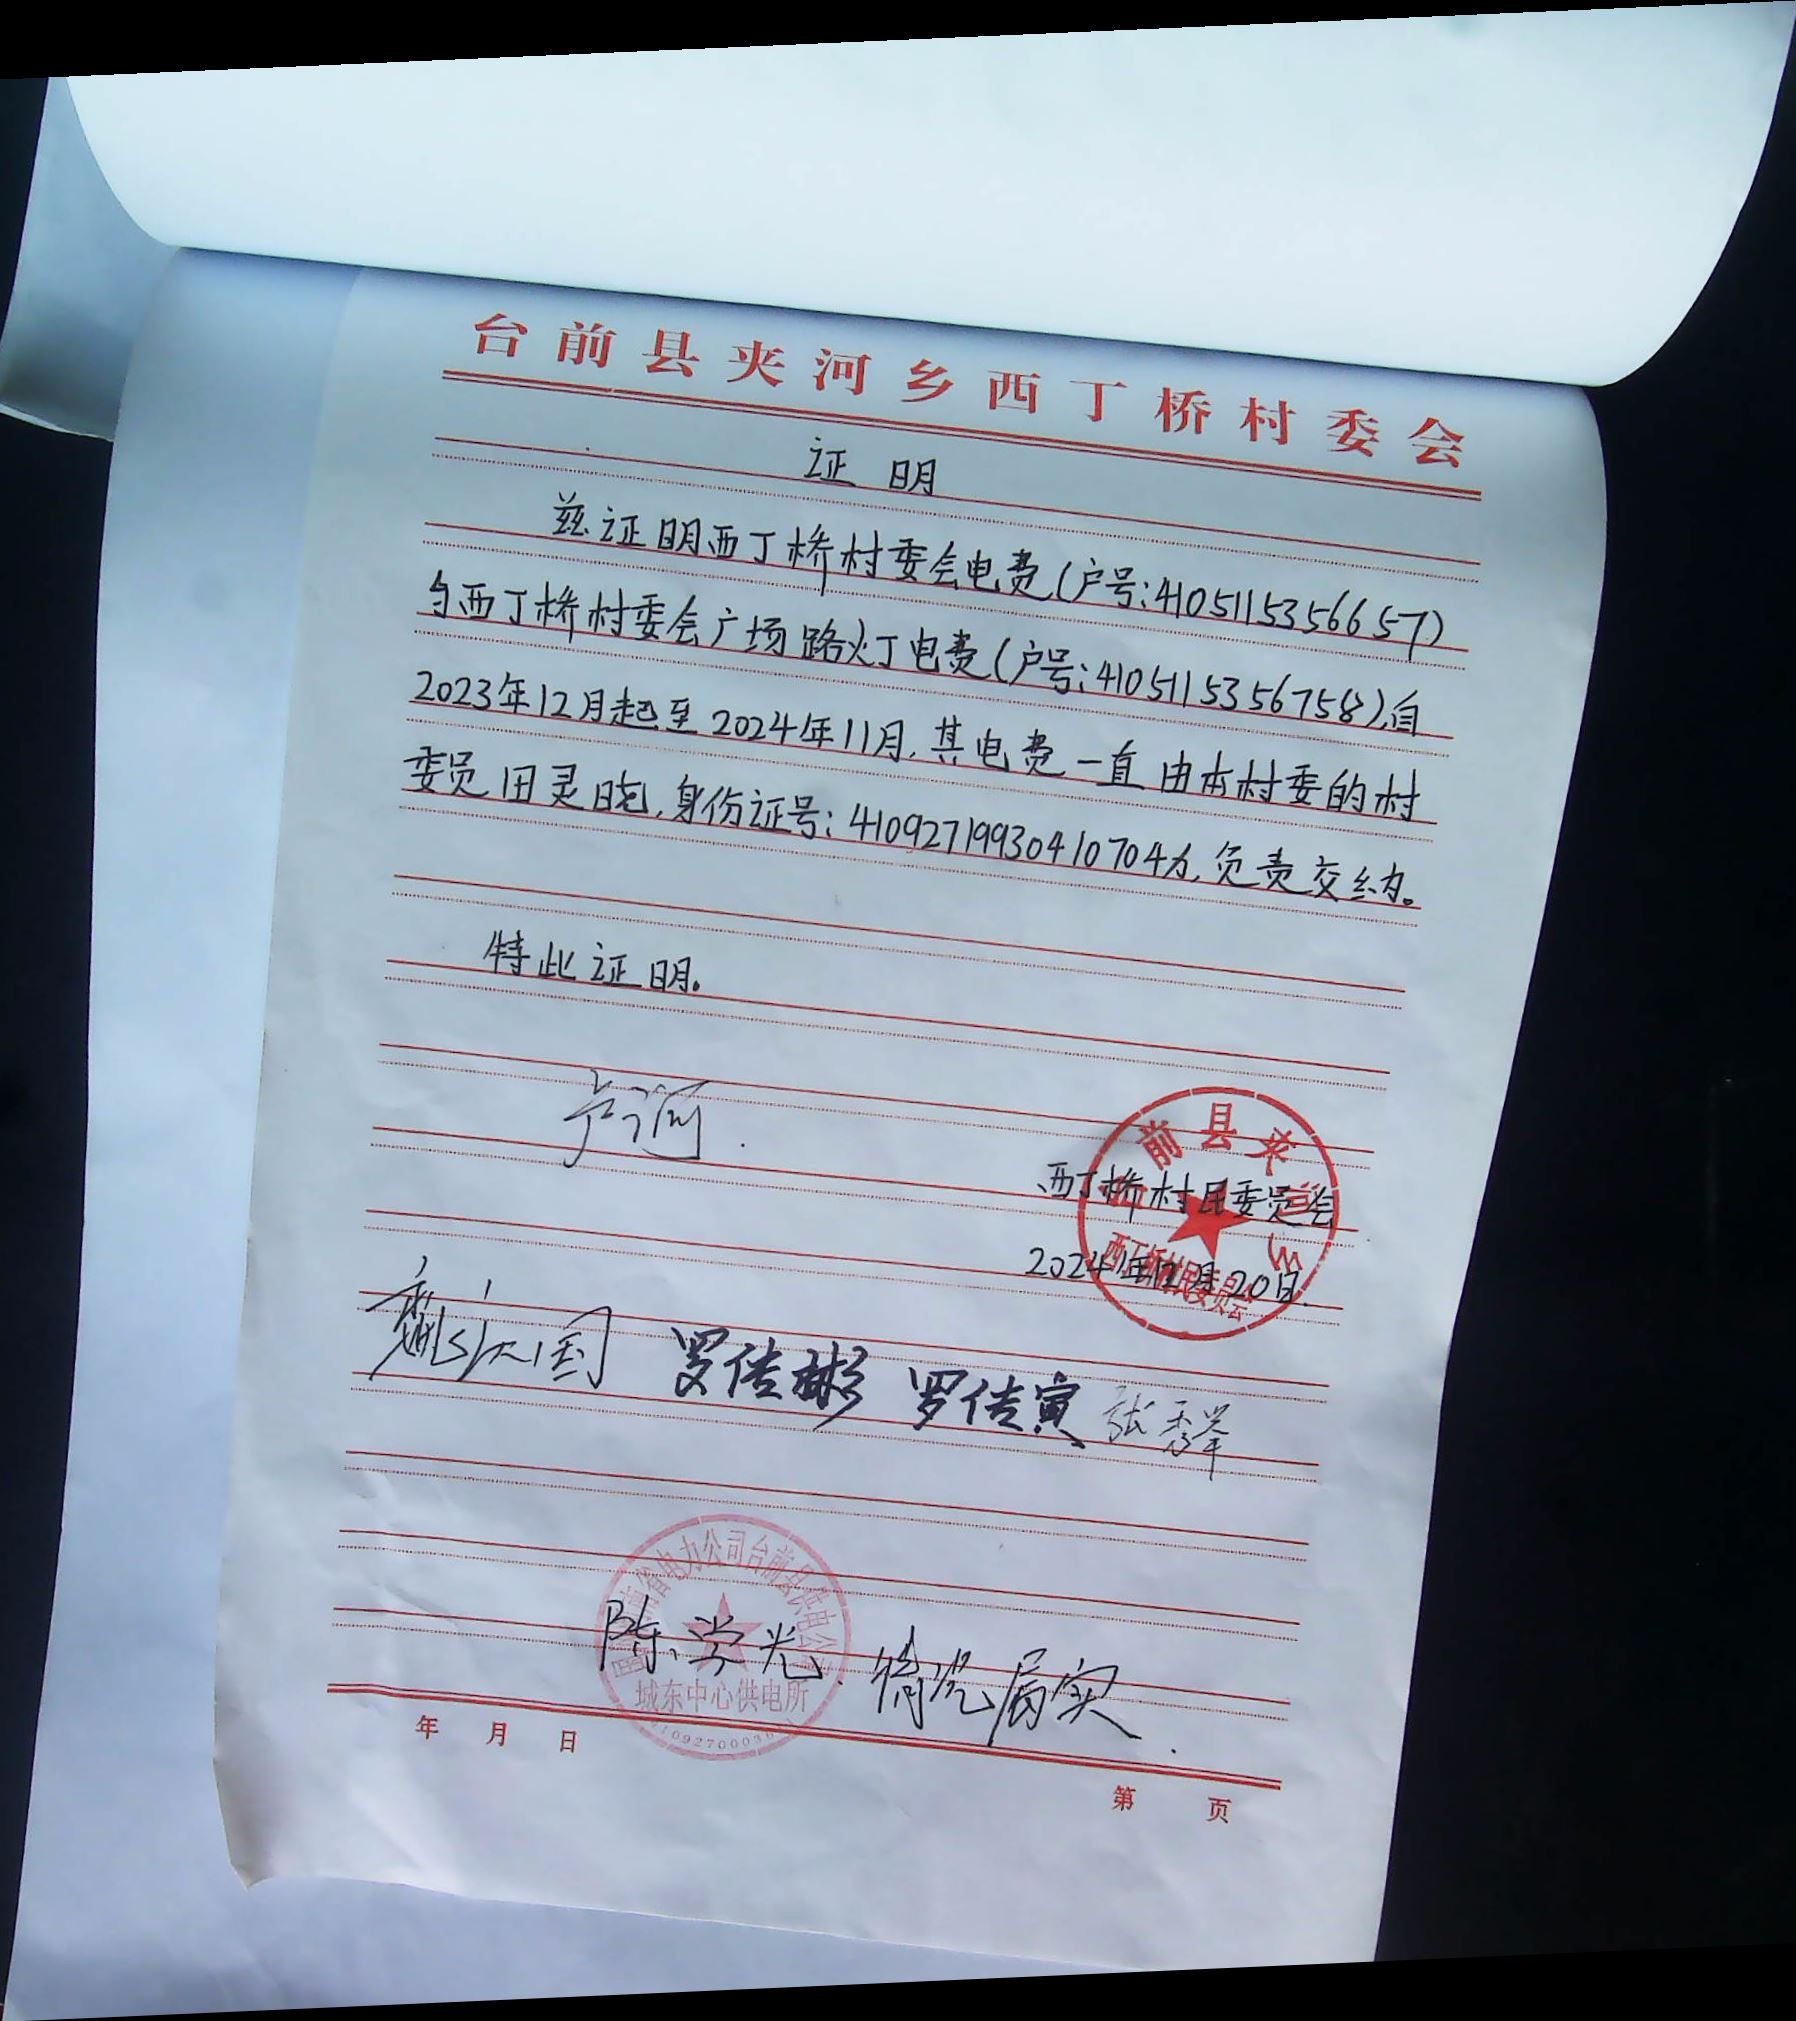 台前县夹河乡西丁桥村委会
证明
兹证明西丁桥村委会电费(户号:4105115356657)
与西丁桥村委会广场路灯电费(户号:4105115356758),自
2023年12月起至2024年11月,其电费一直由本村委的村
委员田灵晓,身份证号:410927199304107040,负责交纳。
特此证明。
前县夹河乡
西丁桥村民委员会
西丁桥村民委员会
2024年12月20日.
罗传彬 罗传寅 张秀峰
省电力公司台前县供电公司
陈学光. 情况属实.
城东中心供电所
年 月 日
第 页